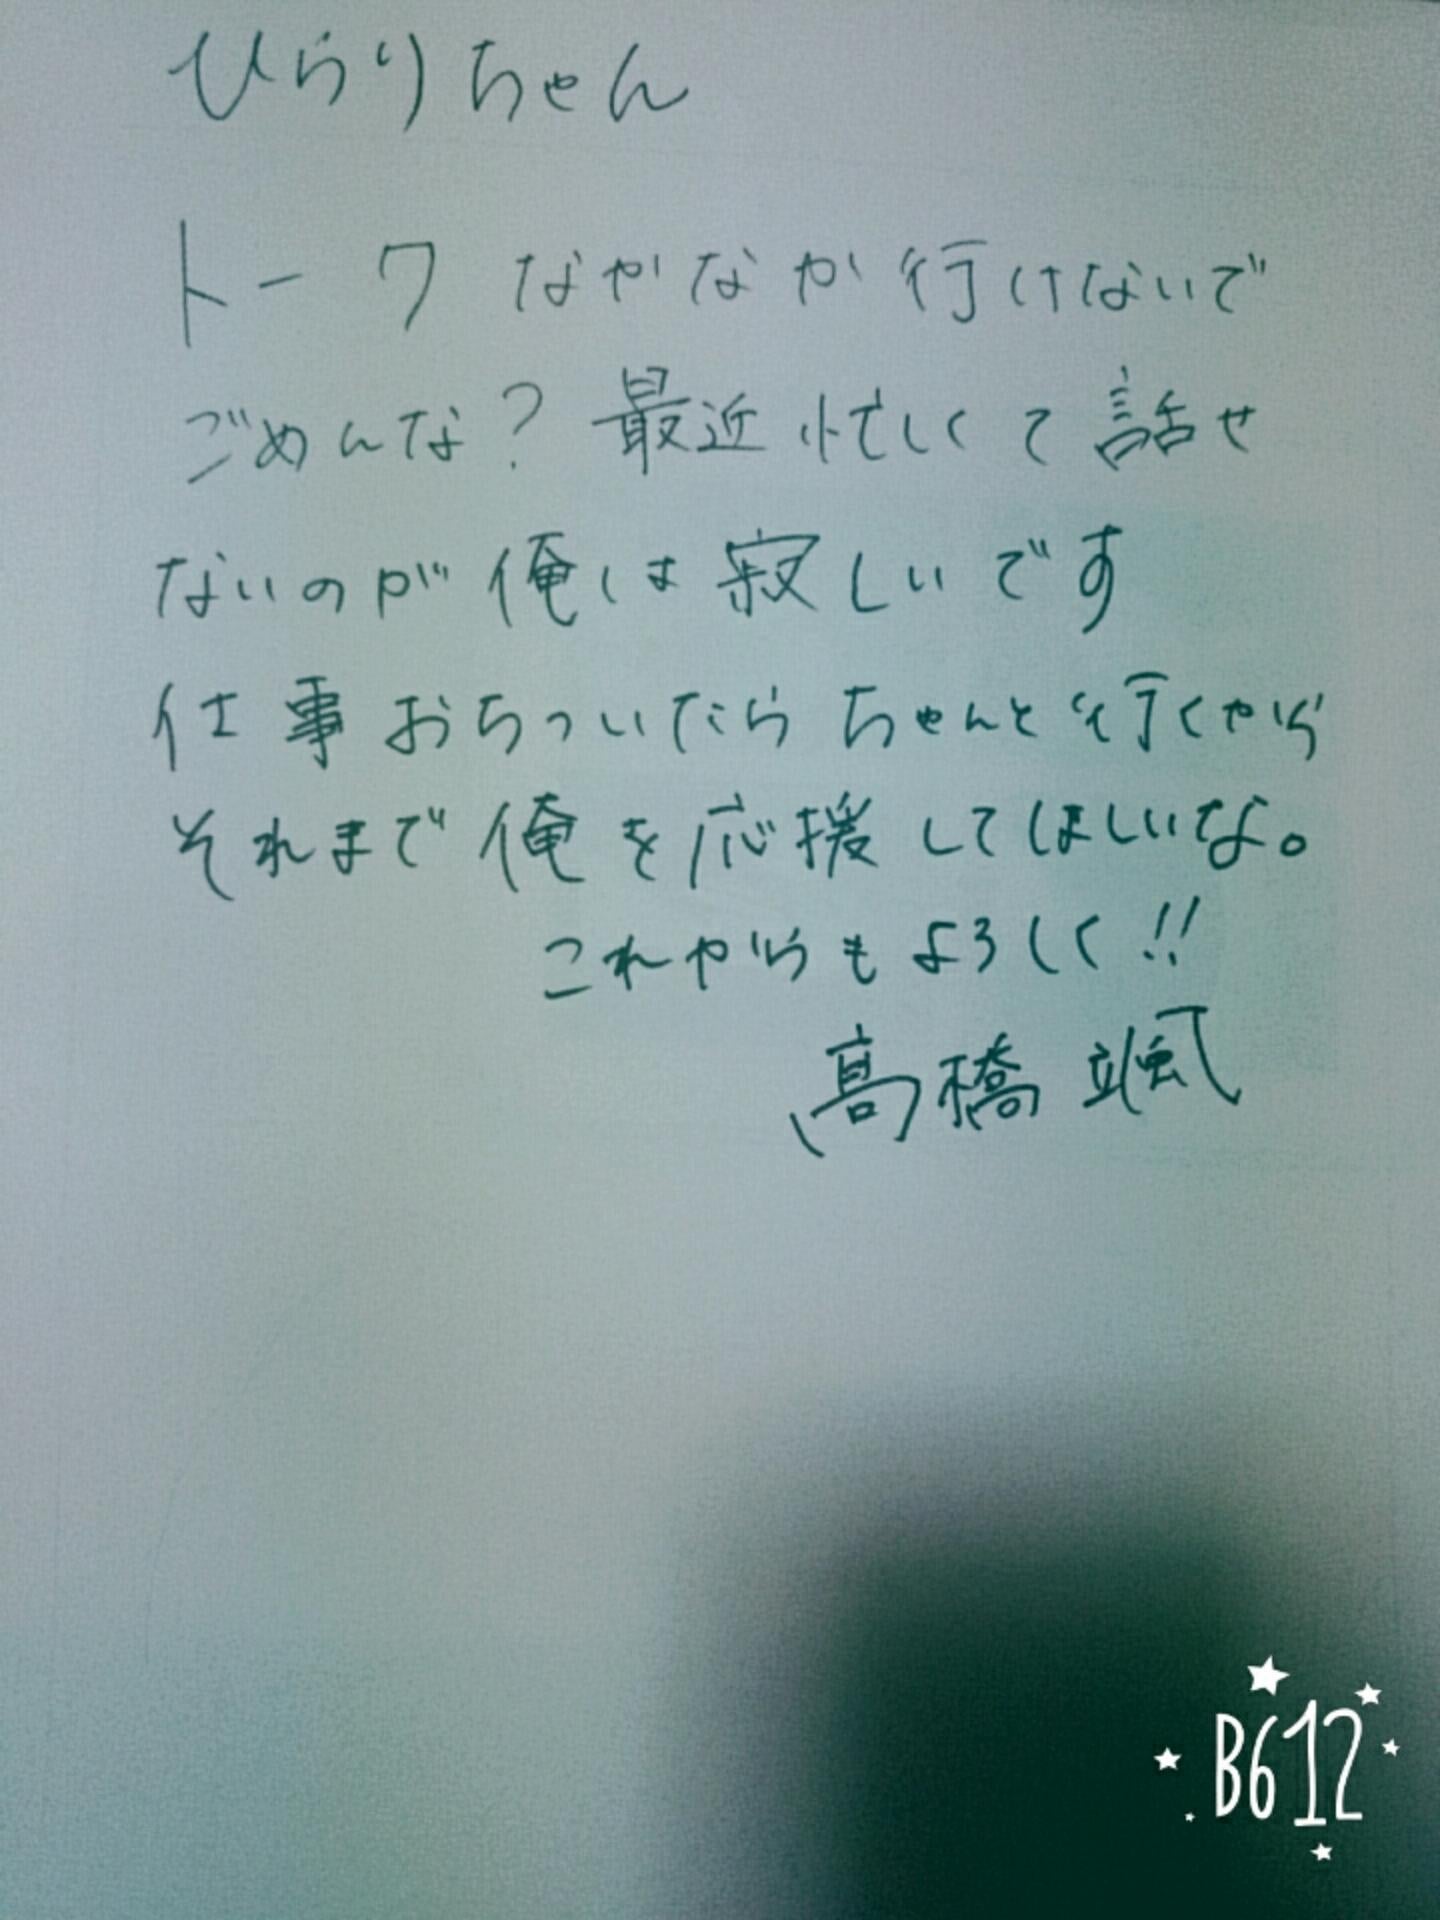 ひらりちゃん
トーク なかなか行けないで
ごめんな？最近忙しくて話せ
ないのが俺は寂しいです
仕事おちついたらちゃんと行くから
それまで俺を応援してほしいな。
これからもよろしく!!
髙橋 颯
B612